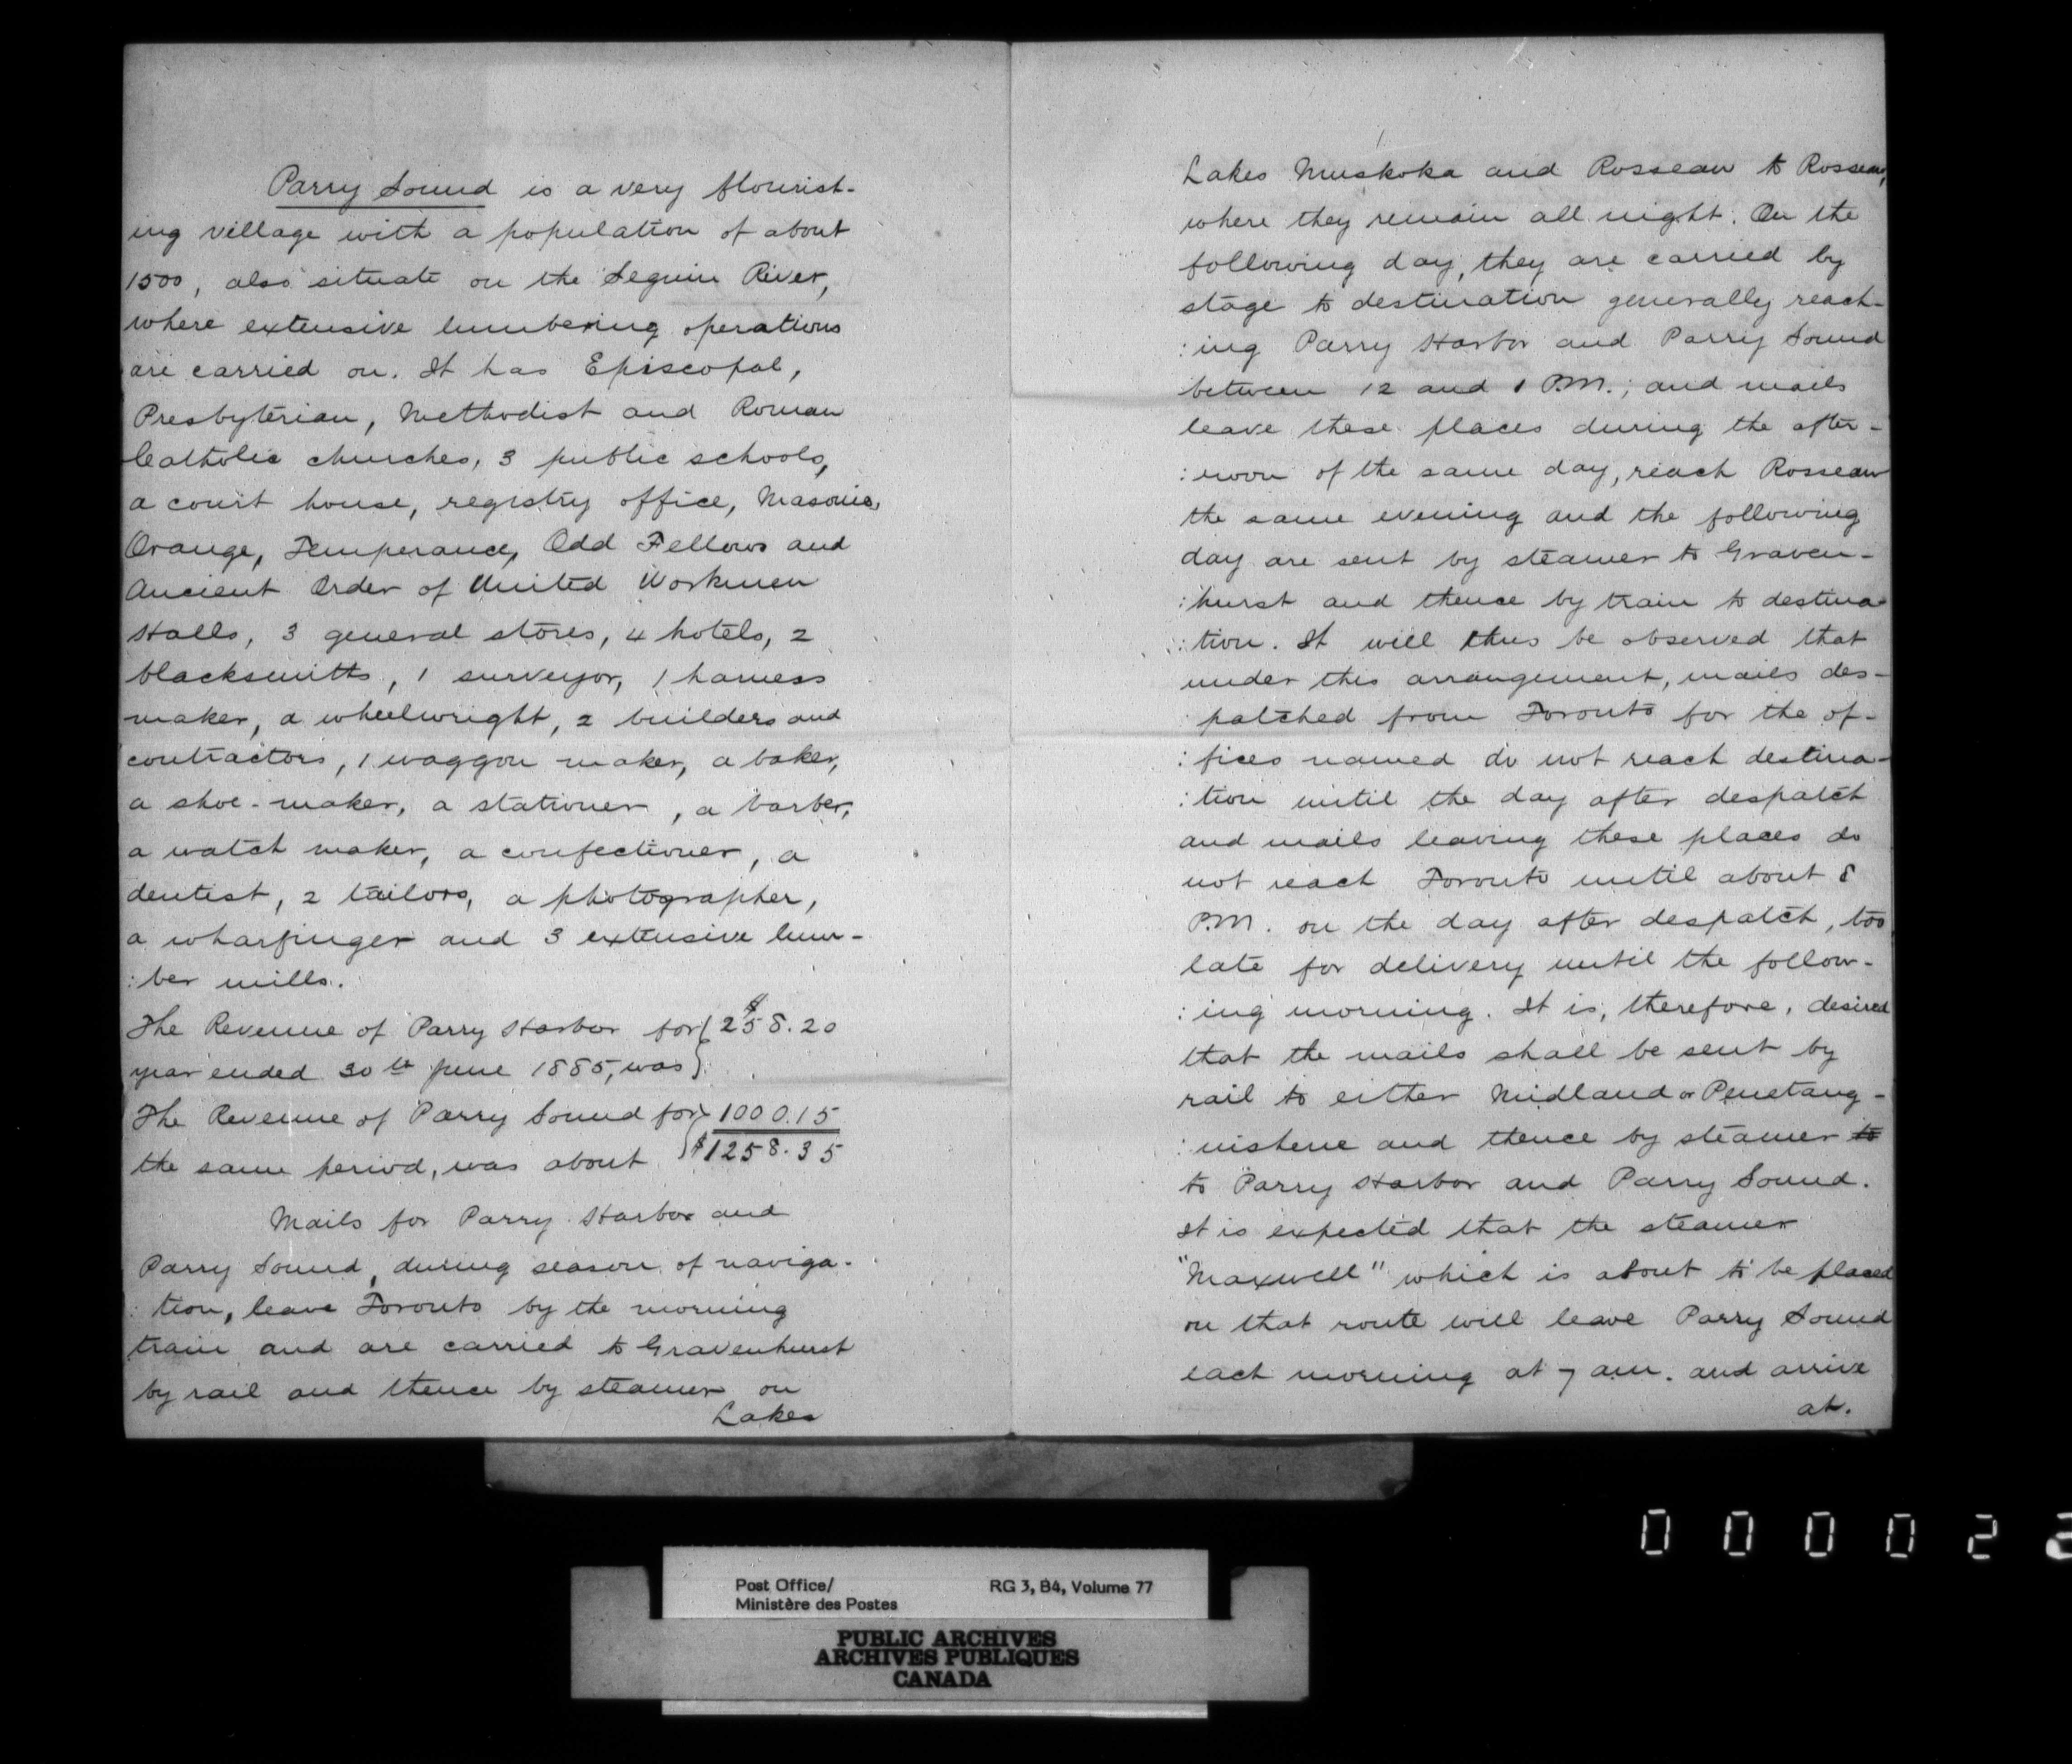 Parry Sound is a very flourist-
ing village with a population of about
1500, also situate on the Seguin River,
where extensive lumbering operations
are carried on. It has Episcopal,
Presbyterian, Methodist and Roman
Catholic churches, 3 public schools,
a court house, registry office, Masonic,
Orange, Temperance, Odd Fellows and
Ancient Order of United Workmen
Halls, 3 general stores, 4 hotels, 2
blacksmiths, 1 surveyor, 1 harness
maker, a wheelwright, 2 builders and
contractors, 1 waggon maker, a baker,
a shoe-maker, a stationer, a barber,
a watch maker, a confectioner, a
dentist, 2 tailors, a photographer,
a wharfinger and 3 extensive lum-
:ber mills.
The Revenue of Parry Harbor for } $258.20
year ended 30th June 1885, was }
The Revenue of Parry Sound for } 1000.15
the same period, was about } $1258.35
Mails for Parry Harbor and
Parry Sound, during season of naviga-
:tion, leave Toronto by the morning
train and are carried to Gravenhurst
by rail and thence by steamer on
Lakes
Lakes Muskoka and Rosseau to Rosseau,
where they remain all night. On the
following day, they are carried by
stage to destination generally reach-
:ing Parry Harbor and Parry Sound
between 12 and 1 P.M.; and mails
leave these places during the after-
:noon of the same day, reach Rosseau
the same evening and the following
day are sent by steamer to Graven-
:hurst and thence by train to destina-
:tion. It will thus be observed that
under this arrangement, mails des-
patched from Toronto for the of-
:fices named do not reach destina-
:tion until the day after despatch
and mails leaving these places do
not reach Toronto until about 8
P.M. on the day after despatch, too
late for delivery until the follow-
:ing morning. It is, therefore, desired
that the mails shall be sent by
rail to either Midland or Penetang-
:uishene and thence by steamer to
to Parry Harbor and Parry Sound.
It is expected that the steamer
"Maxwell" which is about to be placed
on that route will leave Parry Sound
each morning at 7 am. and arrive
at.
000022
Post Office/ RG 3, B4, Volume 77
Ministère des Postes
PUBLIC ARCHIVES
ARCHIVES PUBLIQUES
CANADA